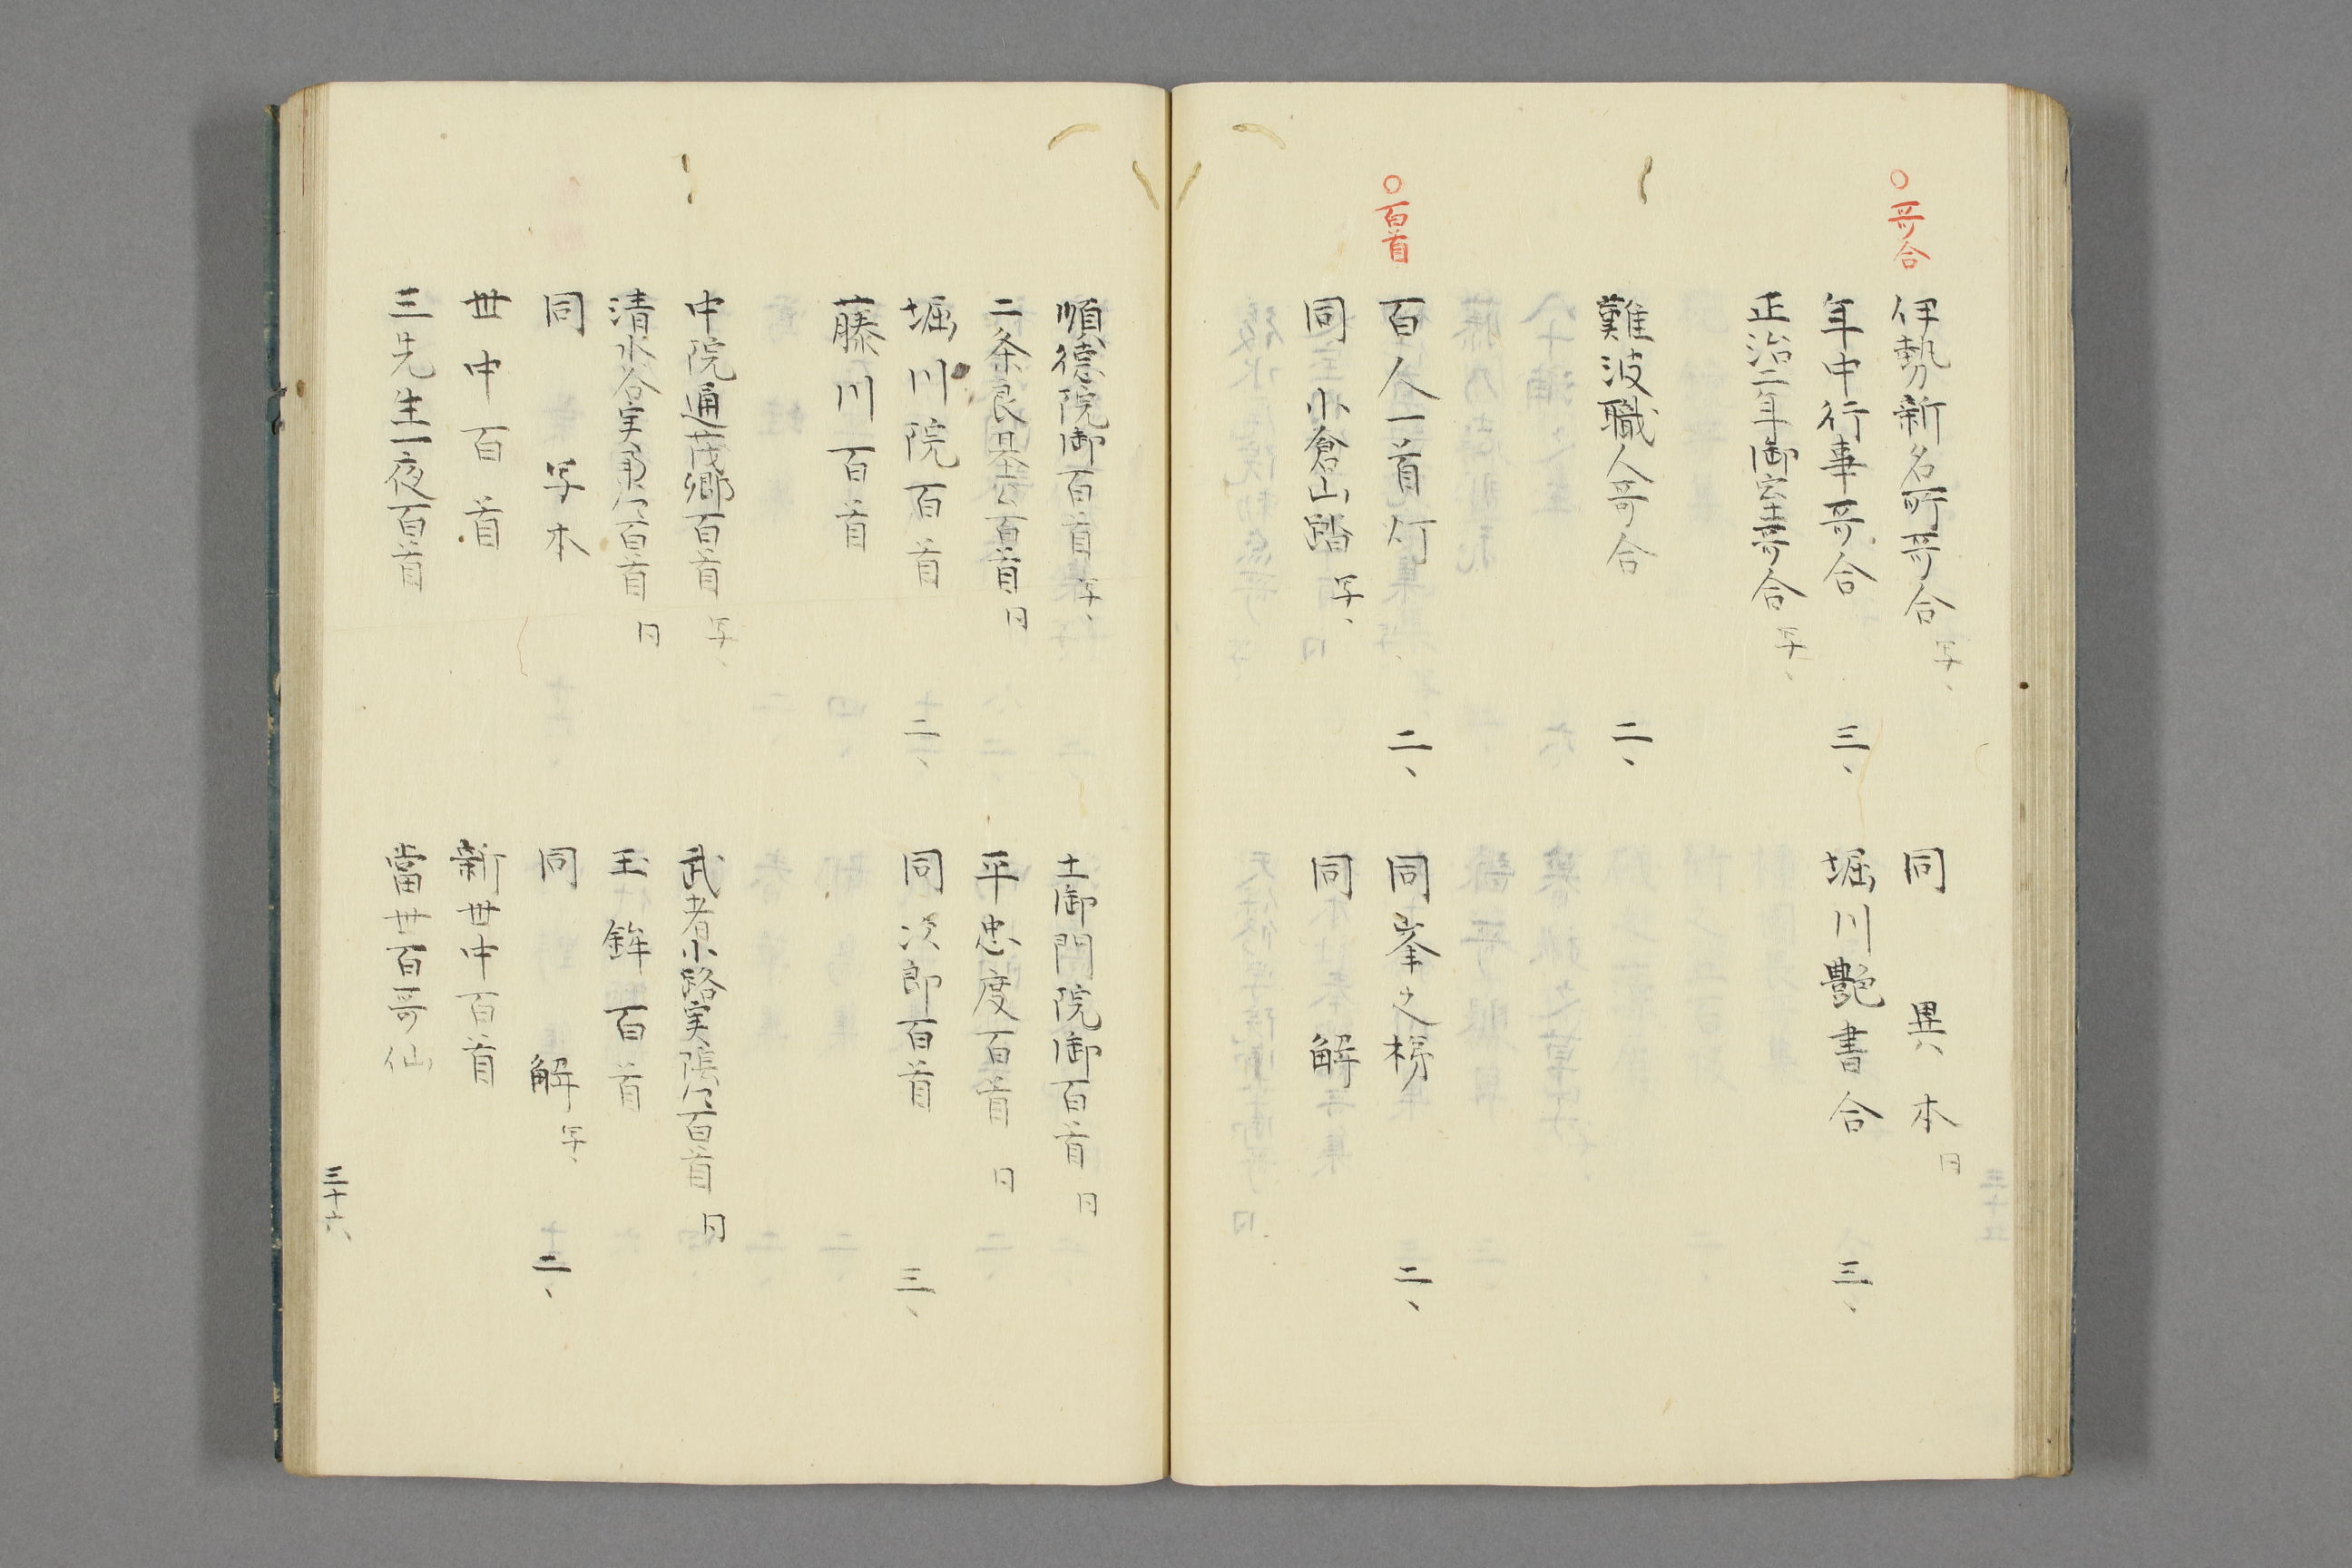 ○哥合
伊勢新名所哥合 写、
同 異本 日
年中行事哥合 三、
堀川艶書合 三、
正治二年御室哥合 写、
難波職人哥合 二、
○百首
百人一首灯 二、
同峯之梯 二、
同 小倉山踏 写、
同 解
順徳院御百首 写、
土御門院御百首 日
二条良基公百首 日
平忠度百首 日
堀川院百首 二、
同次郎百首 三、
藤川百首
中院通茂卿百首 写、
武者小路実陰公百首 日
清水谷実業公百首 日
玉鉾百首
同 写本
同 解 写、 二、
丗中百首
新丗中百首
三先生一夜百首
當丗百哥仙
三十六